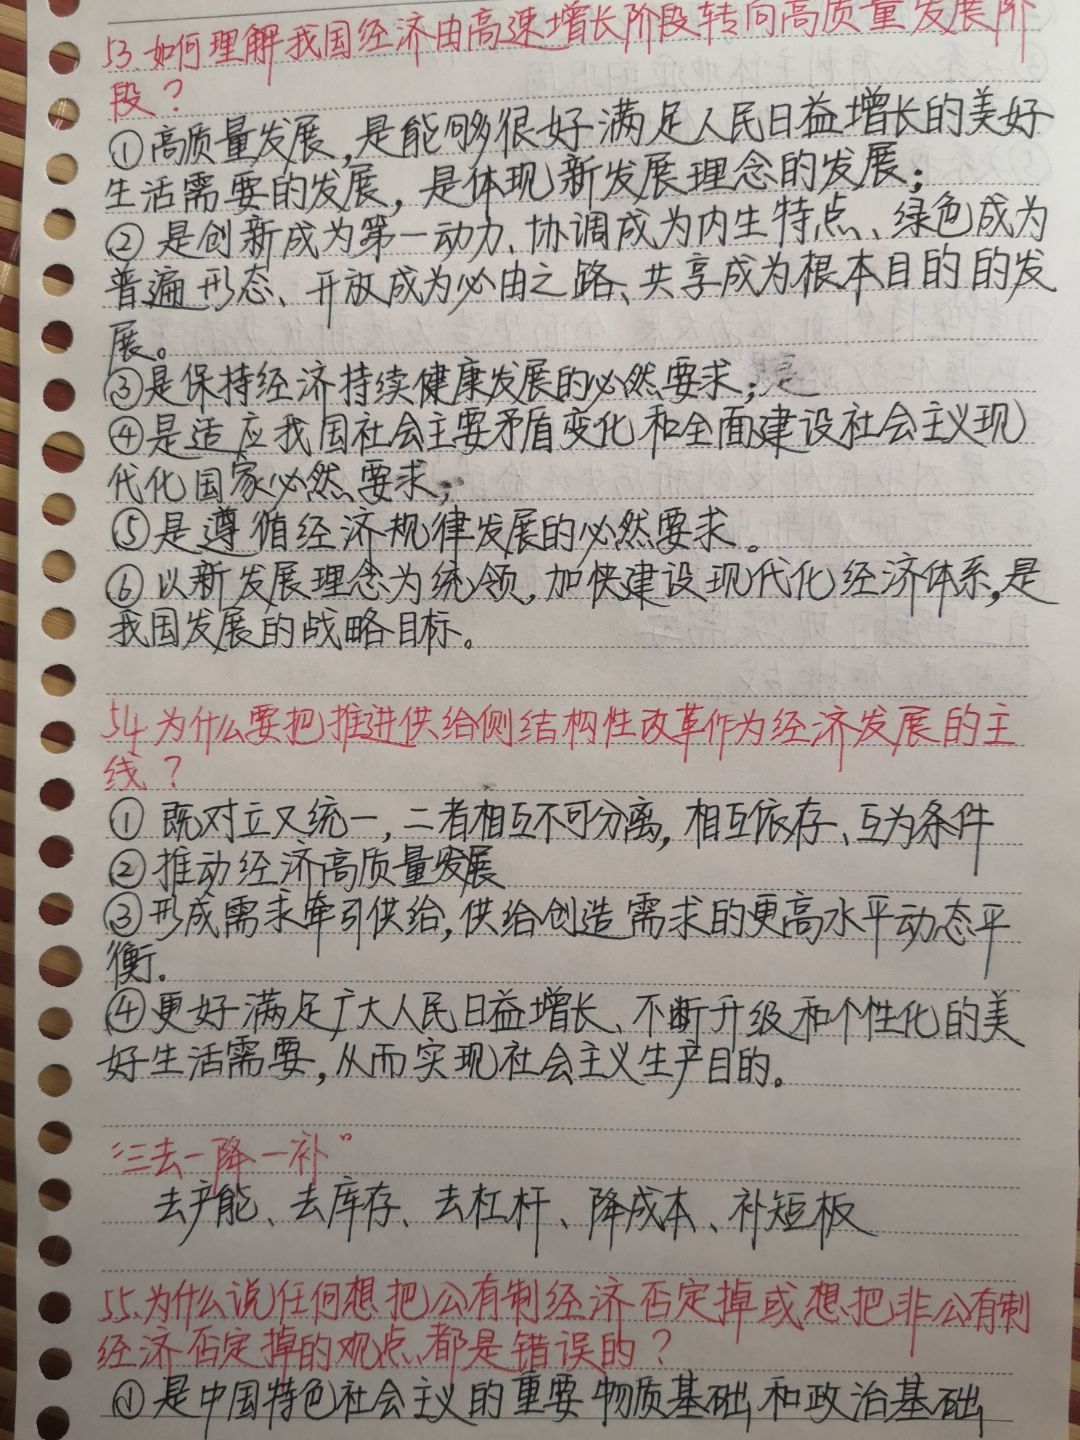 53.如何理解我国经济由高速增长阶段转向高质量发展阶
段？
①高质量发展,是能够很好满足人民日益增长的美好
生活需要的发展，是体现新发展理念的发展；
②是创新成为第一动力、协调成为内生特点、绿色成为
普遍形态、开放成为必由之路、共享成为根本目的的发
展。
③是保持经济持续健康发展的必然要求；
④是适应我国社会主要矛盾变化和全面建设社会主义现
代化国家必然要求；
⑤是遵循经济规律发展的必然要求。
⑥以新发展理念为统领,加快建设现代化经济体系,是
我国发展的战略目标。
54.为什么要把推进供给侧结构性改革作为经济发展的主
线？
①既对立又统一,二者相互不可分离,相互依存、互为条件
②推动经济高质量发展
③形成需求牵引供给,供给创造需求的更高水平动态平
衡.
④更好满足广大人民日益增长、不断升级和个性化的美
好生活需要,从而实现社会主义生产目的。
“三去一降一补”
去产能、去库存、去杠杆、降成本、补短板
55.为什么说任何想把公有制经济否定掉或想把非公有制
经济否定掉的观点,都是错误的？
①是中国特色社会主义的重要物质基础和政治基础,